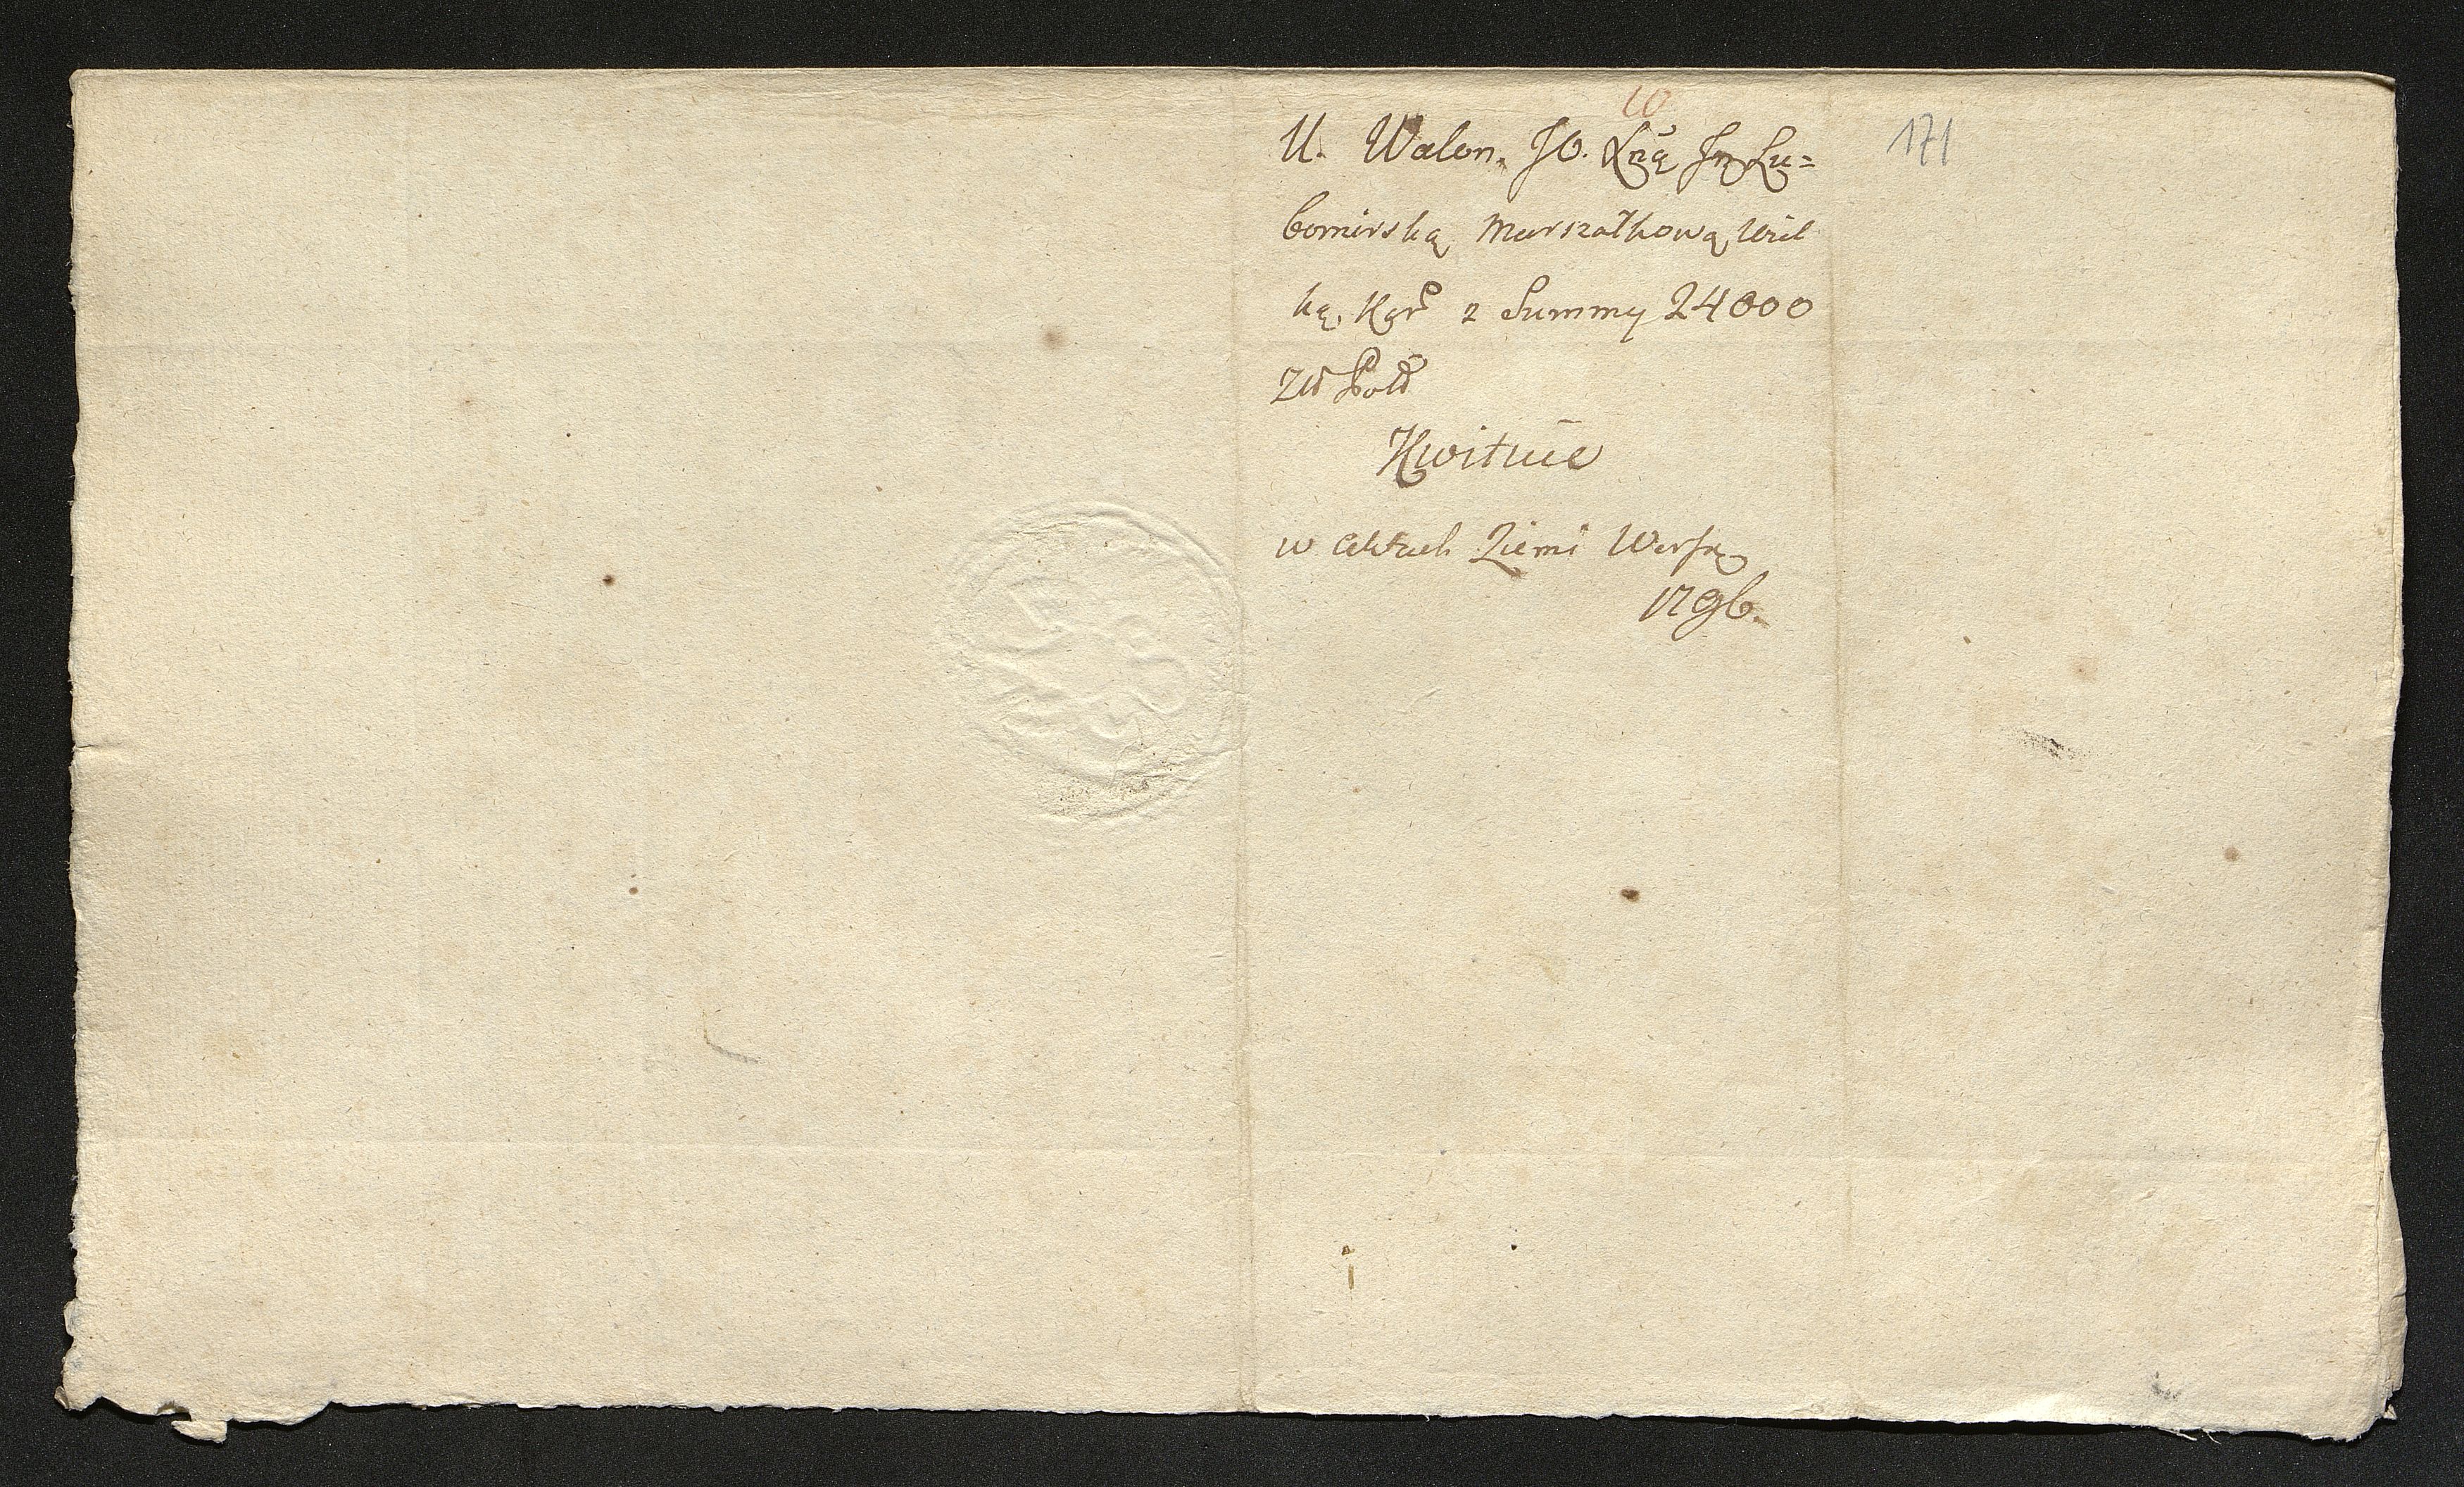 10
U. Walen. JO. Xżę Jey Lu=
bomirską Marszałkową Wiel
ką Kor z Summy 24000
Złł Poll
Kwituie
w Aktach Ziemi Warsz
1796.
171